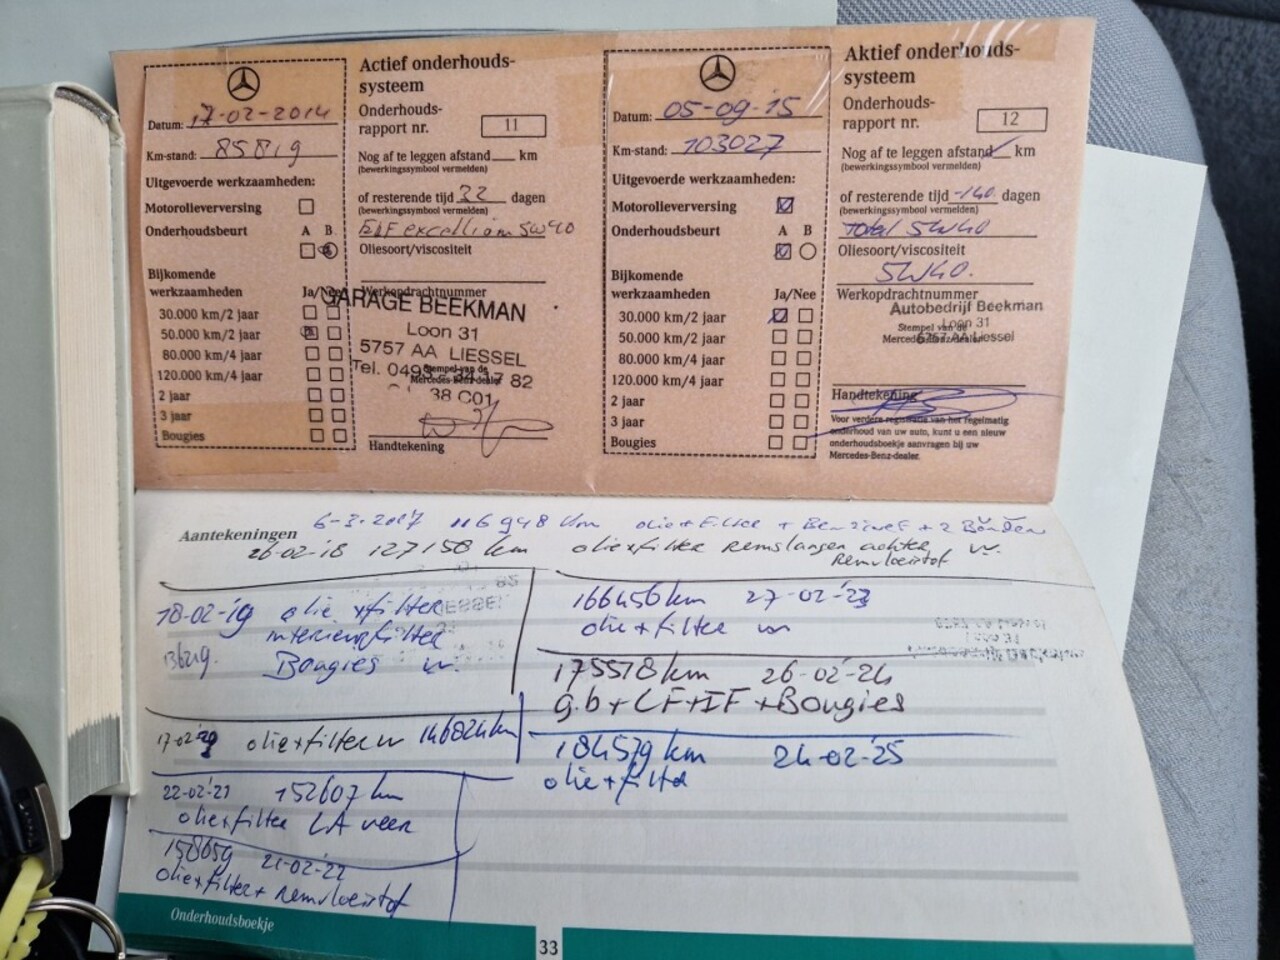 Actief onderhouds-
systeem
Onderhouds-
rapport nr. 11
Datum: 17-02-2014
Km-stand: 85819
Nog af te leggen afstand km
(bewerkingssymbool vermelden)
Uitgevoerde werkzaamheden:
of resterende tijd 32 dagen
(bewerkingssymbool vermelden)
Motorolieverversing
ELF excellium 5W40
Onderhoudsbeurt A B
Oliesoort/viscositeit
Bijkomende
werkzaamheden Ja/Nee
Werkopdrachtnummer
GARAGE BEEKMAN
Loon 31
5757 AA LIESSEL
Stempel van de
Mercedes-Benz-dealer
38 C01
30.000 km/2 jaar
50.000 km/2 jaar
80.000 km/4 jaar
120.000 km/4 jaar
2 jaar
3 jaar
Bougies
Handtekening
Aktief onderhouds-
systeem
Onderhouds-
rapport nr. 12
Datum: 05-09-15
Km-stand: 103027
Nog af te leggen afstand km
(bewerkingssymbool vermelden)
Uitgevoerde werkzaamheden:
of resterende tijd -140 dagen
(bewerkingssymbool vermelden)
Motorolieverversing
Total 5W40
Onderhoudsbeurt A B
Oliesoort/viscositeit
5W40.
Bijkomende
werkzaamheden Ja/Nee
Werkopdrachtnummer
Autobedrijf Beekman
Loon 31
5757 AA Liessel
Stempel van de
Mercedes-Benz-dealer
30.000 km/2 jaar
50.000 km/2 jaar
80.000 km/4 jaar
120.000 km/4 jaar
2 jaar
3 jaar
Bougies
Handtekening
Voor verdere registratie van het regelmatig
onderhoud van uw auto, kunt u een nieuw
onderhoudsboekje aanvragen bij uw
Mercedes-Benz-dealer.
Aantekeningen 6-3-2017 116948 km olie+filter + + 2 Banden
26-02-'18 127158 km olie+filter Remslangen achter vv.
Remvloeistof
18-02-'19 olie+filter
interieurfilter
Bougies vv.
17-02- olie+filter vv 146824 km
22-02-'21 152607 km
olie+filter LA veer
158659 21-02-'22
olie+filter+ Remvloeistof
166456 km 27-02-'23
olie+filter vv
175578 km 26-02-'24
g.b+LF+IF+Bougies
184579 km 24-02-'25
olie+filter
Onderhoudsboekje
33